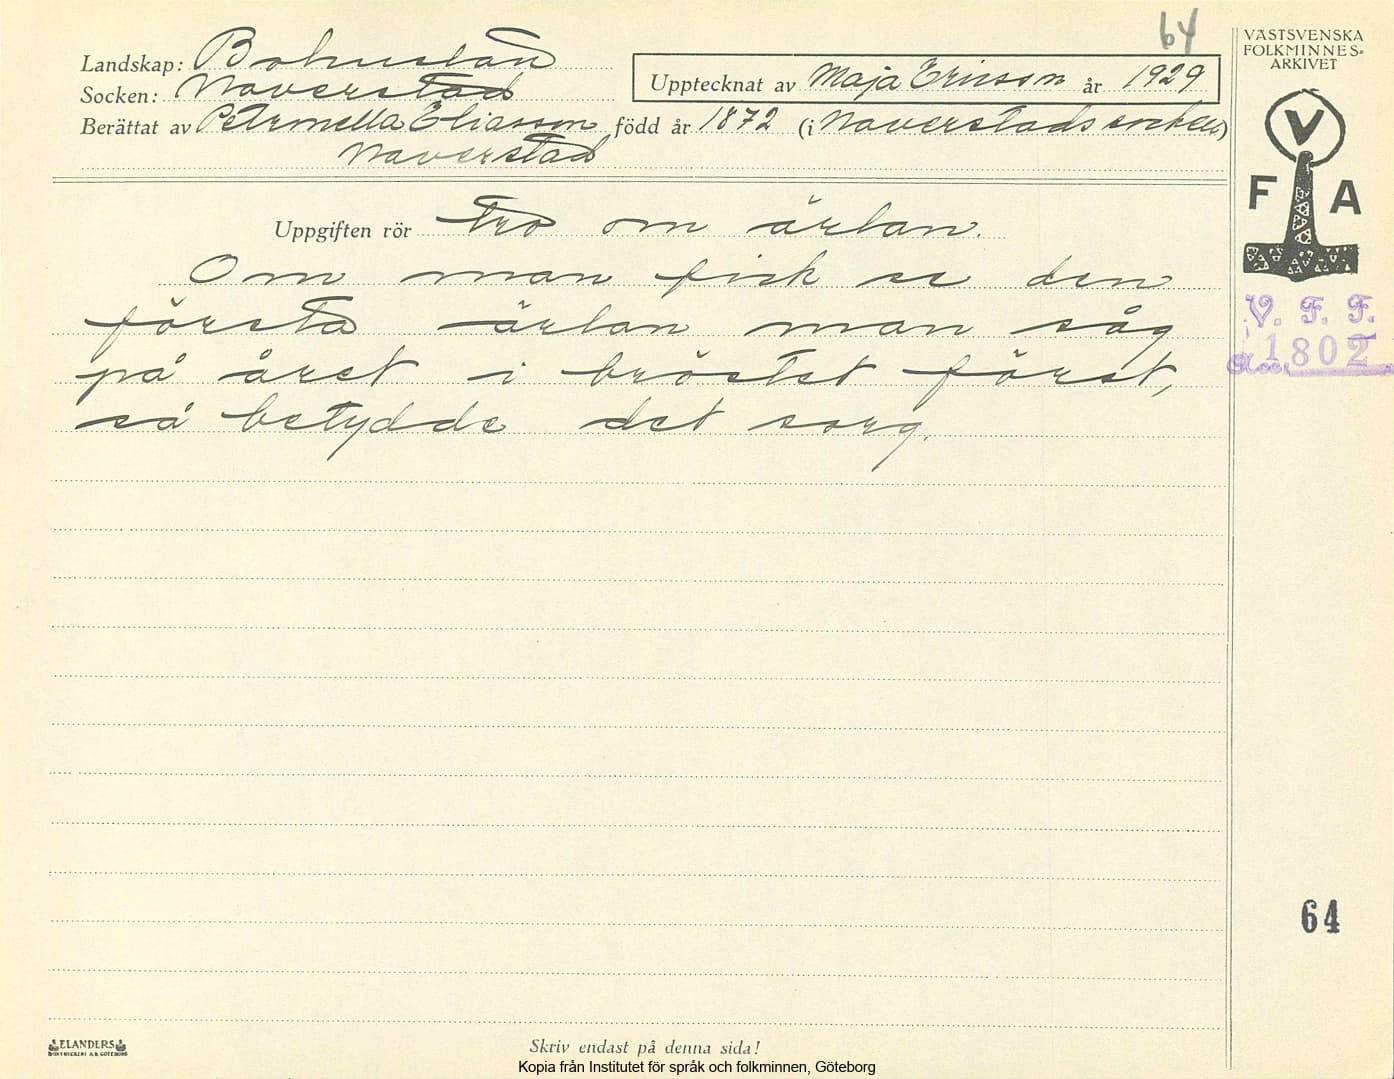 64
Landskap: Bohuslän
Socken: Naverstad
Upptecknat av Maja Ericsson år 1929
Berättat av Petronella Eliasson född år 1872 (i Naverstads socken)
Naverstad
VÄSTSVENSKA
FOLKMINNES-
ARKIVET
V
F A
Uppgiften rör Tro om ärlan.
Om man fick se den
första ärlan man såg
på året i bröstet först,
så betydde det sorg.
V. F. F.
Acc. 1802
64
ELANDERS
BOKTRYCKERI A.B. GÖTEBORG
Skriv endast på denna sida!
Kopia från Institutet för språk och folkminnen, Göteborg